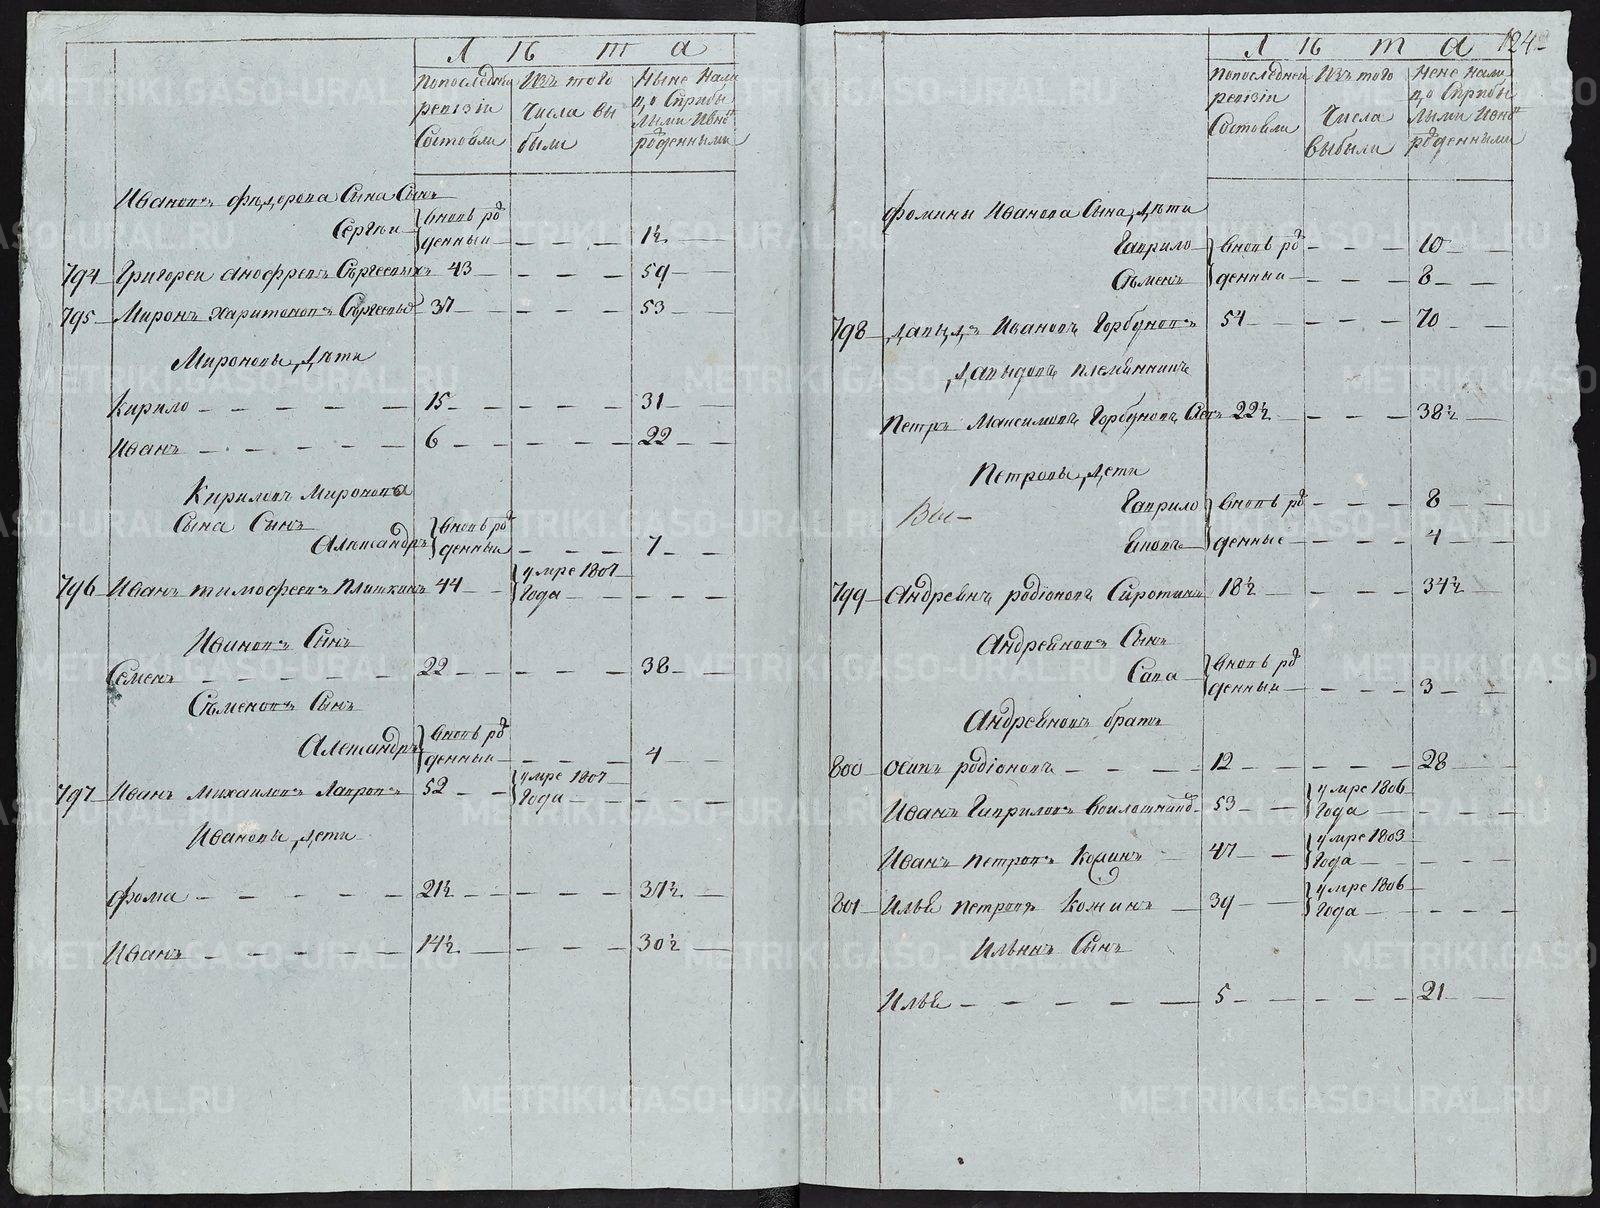 Л ѣ т а
Попоследней ревизіи Состояли
Изъ того Числа вы были
Ныне Нали цо Сприбы лыми Ивнᵒ рожденными
Ивановъ Федорова Сына Сынъ
Сергеи вновь рож денныи — — — 1½
794 Григореи Анофревъ Сергеевыхъ 43 — — — 59
795 Миронъ Харитоновъ 37 — — — 53
Мироновы дѣти
Кирило — — — 15 — — — 31
Иванъ — — — 6 — — — 22
Кириловъ Миронова
Сына Сынъ
Александръ вновь рож денныи — — — 7
796 Иванъ тимофеевъ Плишкинъ 44 — умре 1807 Года — — —
Ивановъ Сынъ
Семенъ — — — 22 — — — 38
Съменовъ Сынъ
Александръ вновь рож денныи — — — 4
797 Иванъ Михаиловъ Лавровъ 52 — умре 1807 Года — — —
Ивановы дети
Фома — — — 21½ — — — 37½
Иванъ — — — 14½ — — — 30½
124
Л ѣ т а
Попоследней ревизіи Состояли
Изъ того Числа выбыли
Нене Нали цо Сприбы лыми Ивнᵒ рожденными
Фомины Иванова Сына дѣти
Гаврило вновь рож — — — 10
Съменъ денныи — — — 8
798 давыдъ Ивановъ Горбуновъ 54 — — — 70
Давыдовъ племянникъ
Петръ Максимовъ Горбуновъ 22½ — — — 38½
Петровы дети
Гаврило вновь рож — — — 8
денные — — — 4
799 Андреянъ родіоновъ Сиротинъ 18½ — — — 34½
Андреяновъ Сынъ
Сава вновь рож денныи — — — 3
Андреяновъ братъ
800 Осипъ родіоновъ — — — 12 — — — 28
Иванъ Гавриловъ 53 — умре 1806 Года — — —
Иванъ петровъ Кожинъ — 47 — умре 1803 Года — — —
801 Илья петровъ Кожинъ — 39 — умре 1806 Года — — —
Ильинъ Сынъ
Илья — — — 5 — — — 21
METRIKI.GASO-URAL.RU